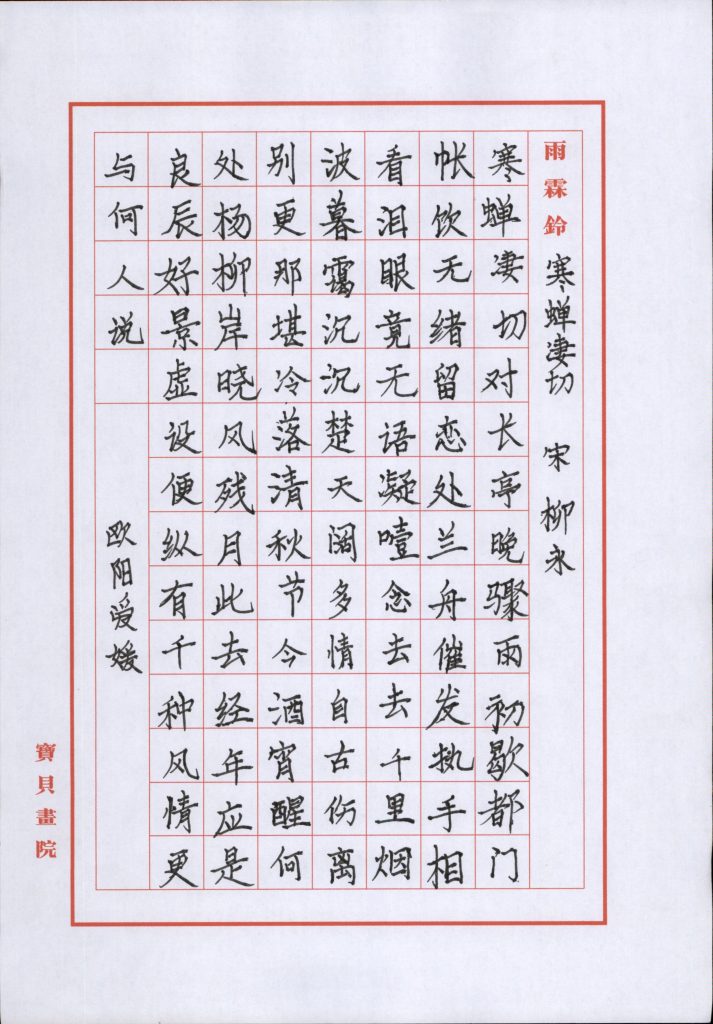 雨霖鈴 寒蝉凄切 宋 柳永
寒蝉凄切对长亭晚骤雨初歇都门
帐饮无绪留恋处兰舟催发执手相
看泪眼竟无语凝噎念去去千里烟
波暮霭沉沉楚天阔多情自古伤离
别更那堪冷落清秋节今酒宵醒何
处杨柳岸晓风残月此去经年应是
良辰好景虚设便纵有千种风情更
与何人说
欧阳爱媛
寶貝畫院